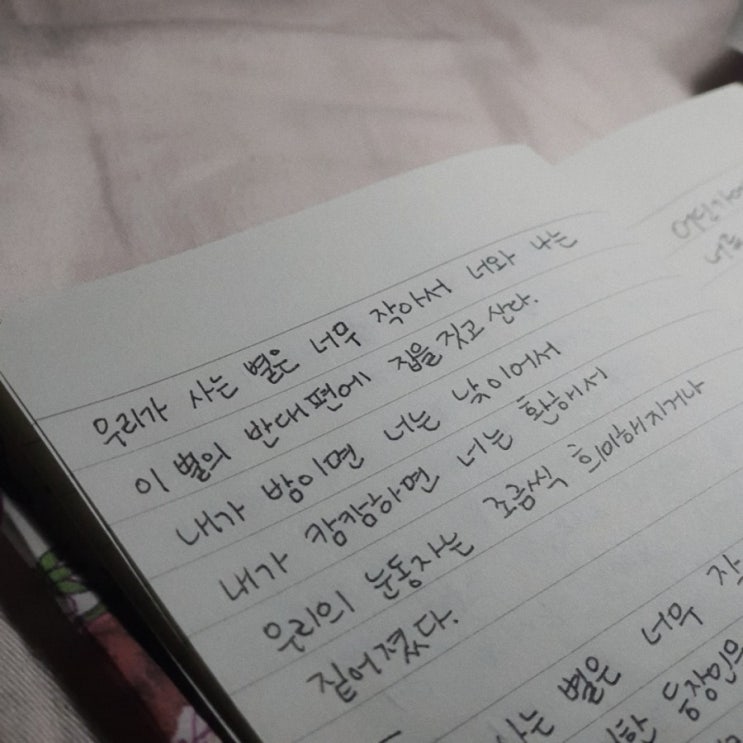 우리가 사는 별은 너무 작아서 너와 나는
이 별의 반대편에 집을 짓고 산다.
내가 밤이면 너는 낮이어서
내가 캄캄하면 너는 환해서
우리의 눈동자는 조금씩 희미해지거나
짙어졌다.
사는 별은 너무 작
등장인